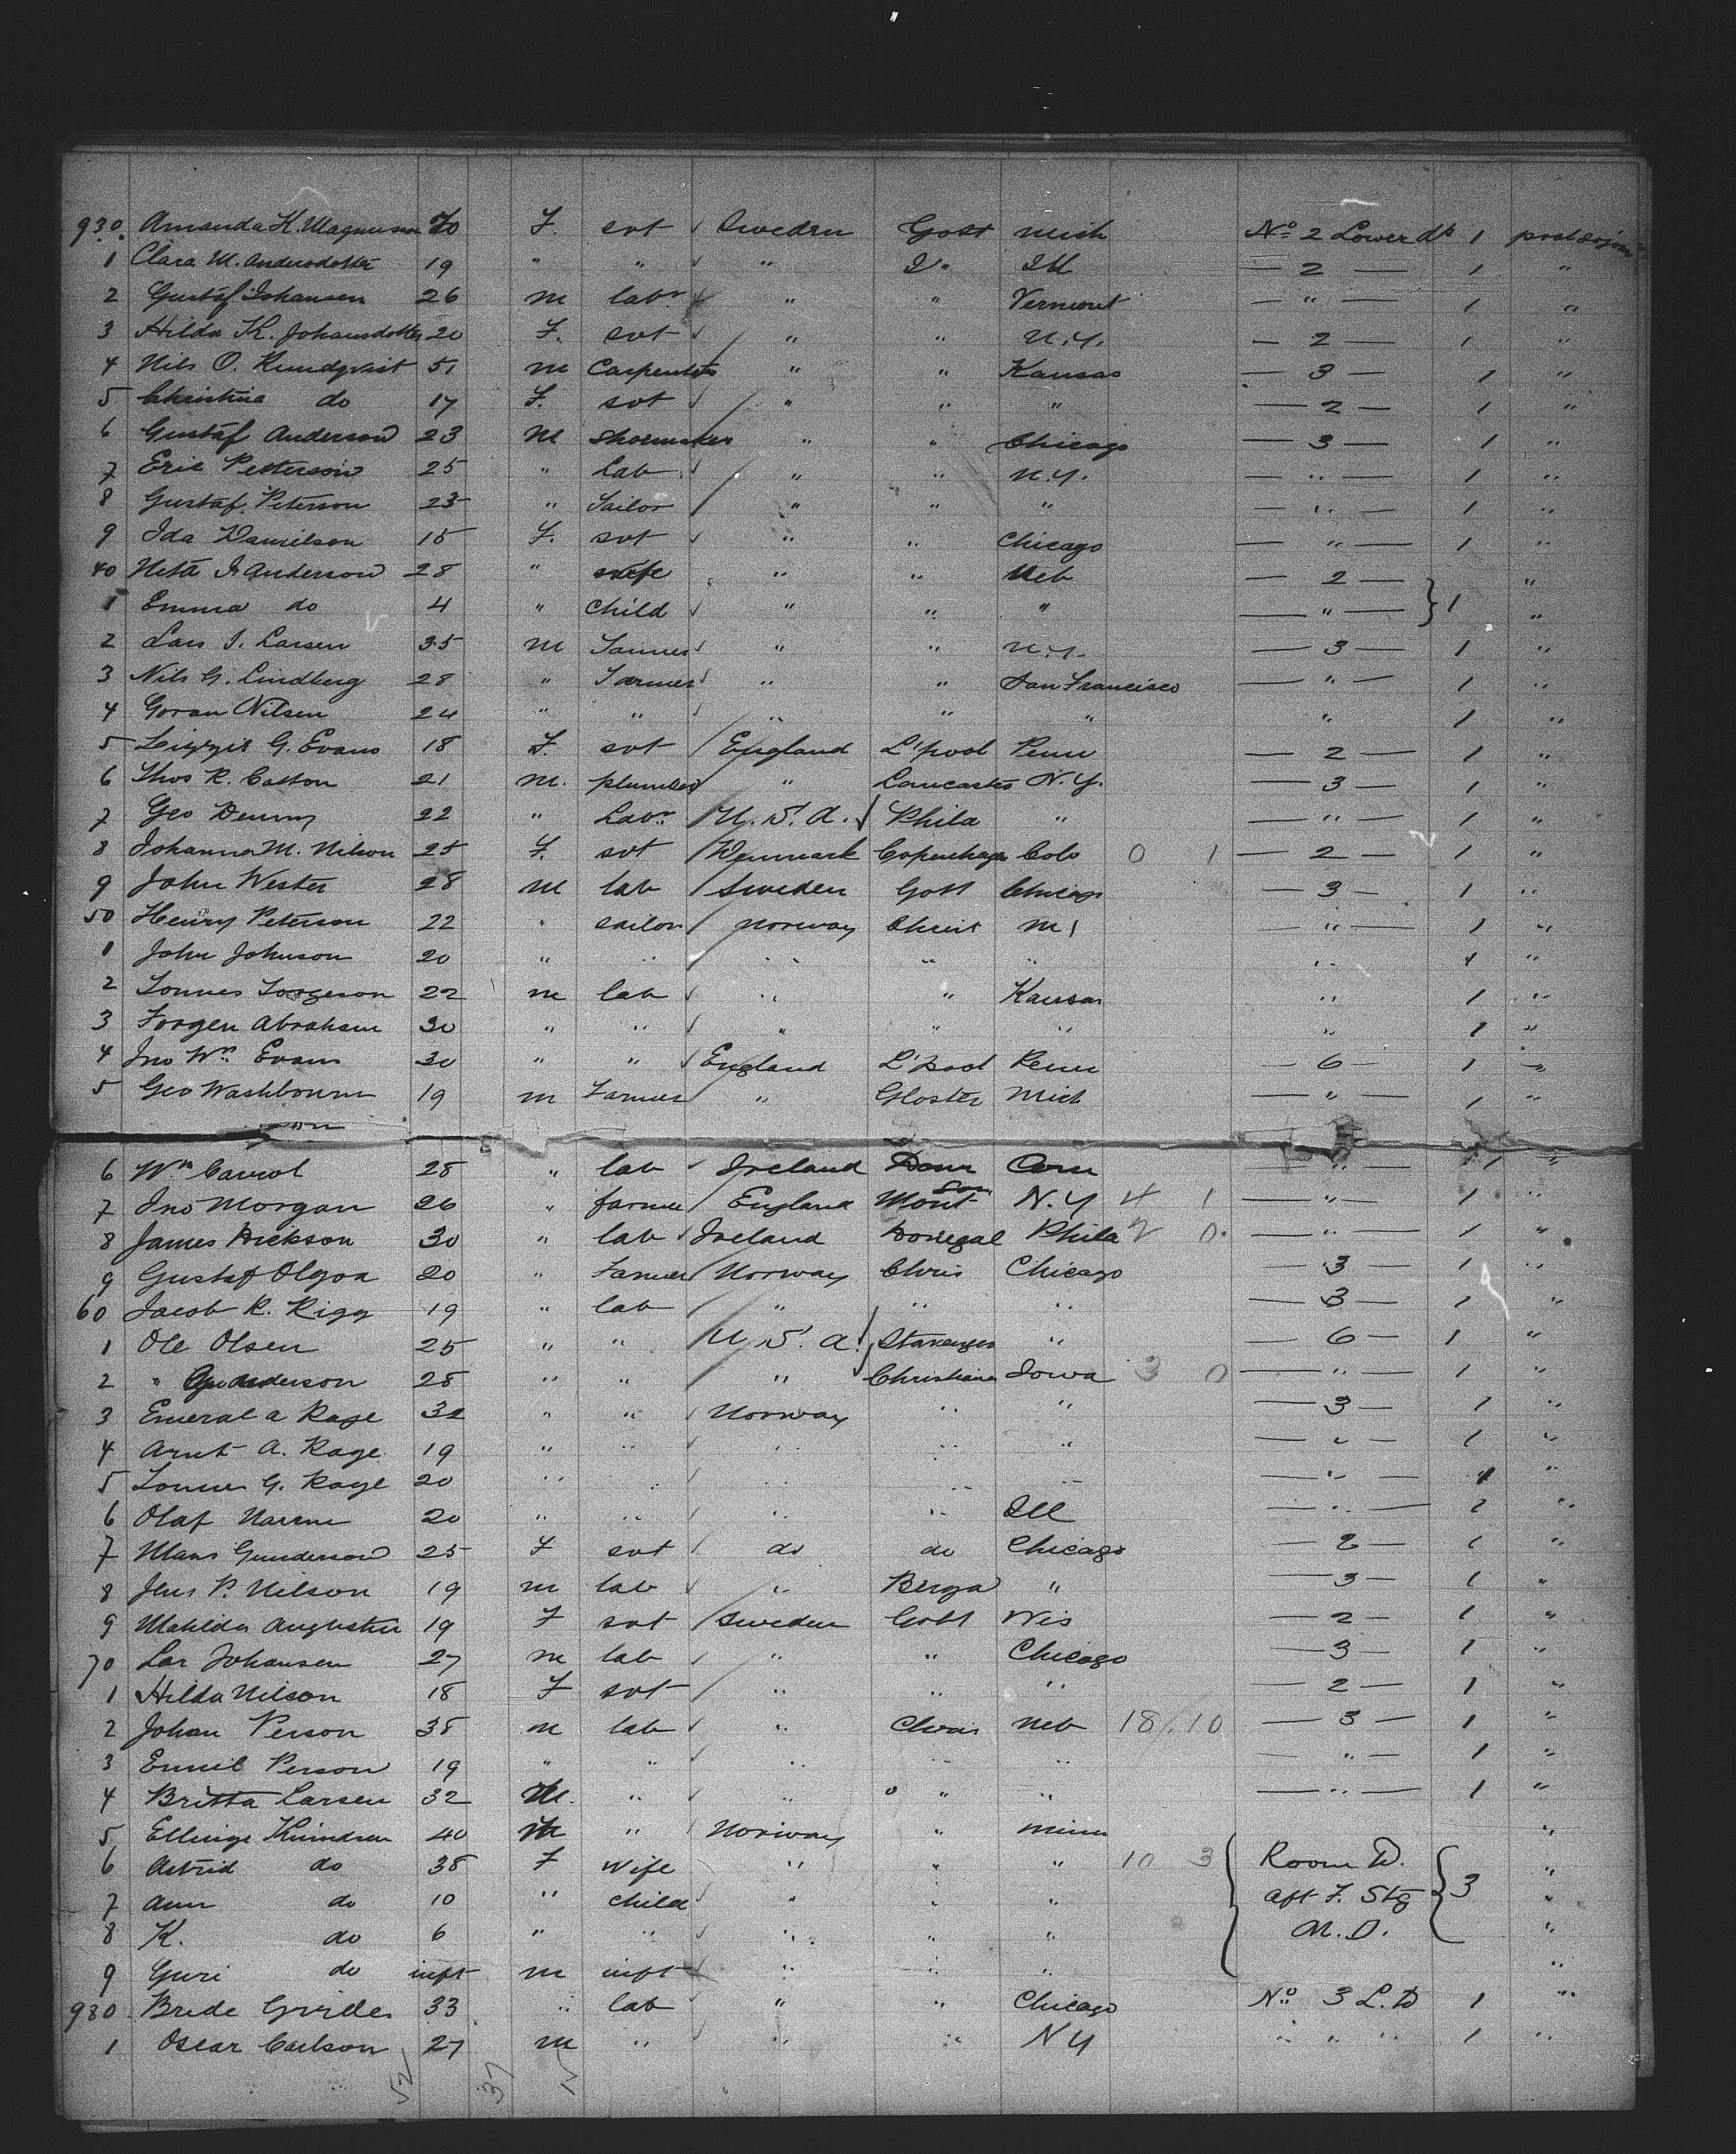 930. Amanda K. Magnuson 20 F. svt Sweden Gott Mich No 2 Lower dk 1 prot sojourn
1 Clara M. Andersdotter 19 " " " Do Ill — 2 — 1 "
2 Gustaf Johansen 26 m labr " " Vermont — " — 1 "
3 Hilda K. Johansdotter 20 F. svt " " N.Y. — 2 — 1 "
4 Nils O. Rundqvist 51 m Carpenter " " Kansas — 3 — 1 "
5 Christina do 17 F. svt " " " — 2 — 1 "
6 Gustaf Anderson 23 M Shoemaker " " Chicago — 3 — 1 "
7 Eric Petterson 25 " Lab " " N.Y. — " — 1 "
8 Gustaf Peterson 23 " Tailor " " " — " — 1 "
9 Ida Danielson 15 F. svt " " Chicago — " — 1 "
40 Anderson 28 " wife " " Neb — 2 — "
1 Emma do 4 " Child " " " — " — } 1 "
2 Lars J. Larsen 35 M Farmer " " N.Y. — 3 — 1 "
3 Nils G. Lindberg 28 " Farmer " " San Francisco — " — 1 "
4 Goran Nilsen 24 " " " " " " 1 "
5 Lizzie G. Evans 18 F. svt England L'pool Penn — 2 — 1 "
6 Thos R. Catton 21 M. plumber " Lancaster N.Y. — 3 — 1 "
7 Geo Denny 22 " Labr U.S.A. Phila " — " — 1 "
8 Johanna M. Nilson 25 F. svt Denmark Copenhagen Colo 0 1 — 2 — 1 "
9 John Wester 28 M lab Sweden Gott Chicago — 3 — 1 "
50 Henry Peterson 22 " sailor Norway Christ — " — 1 "
1 John Johnson 20 " " " " " " 1 "
2 Tonnes Torgeson 22 m lab " " Kansas " 1 "
3 Torgen Abraham 30 " " " " " " 1 "
4 Jno Wm Evans 30 " " England L'pool Penn — 6 — 1 "
5 Geo Washbourn 19 m Farmer " Gloster Mich — " — 1 "
6 Wm Carrol 28 " lab Ireland Down Conn — " — 1 "
7 Jno Morgan 26 " farmer England Mont N.Y 4 1 — " — 1 "
8 James Dickson 30 " lab Ireland Donegal Phila 2 0 — " — 1 "
9 Gustaf Olgoa 20 " Farmer Norway Chris Chicago — 3 — 1 "
60 Jacob R. Rigg 19 " lab " " " — 3 — 1 "
1 Ole Olsen 25 " " U S. a. Stavanger " — 6 — 1 "
2 " Gunderson 28 " " " Christiana Iowa 3 0 — " — 1 "
3 Emeral a Rage 32 " " Norway " " — 3 — 1 "
4 Arnt A. Rage 19 " " " " " — " — 1 "
5 Tonnes G. Rage 20 " " " " " — " — 1 "
6 Olaf 20 " " " " Ill — " — 1 "
7 Gunderson 25 F svt do do Chicago — 2 — 1 "
8 Jens P. Nilson 19 m lab " Berga " — 3 — 1 "
9 Matilda Augustin 19 F svt Sweden Gott Wis — 2 — 1 "
70 Lar Johansen 27 m lab " " Chicago — 3 — 1 "
1 Hilda Nilson 18 F svt " " " — 2 — 1 "
2 Johan Person 38 m lab " Chris Neb 18 10 — 3 — 1 "
3 Emmil Person 19 " " " " " — " — 1 "
4 Britta Larsen 32 M. " " " " — " — 1 "
5 Ellinge 40 M " Norway " Minn "
6 Astrid do 38 F wife " " " 10 3 Room D. "
7 Ann do 10 " child " " " aft F. Stg 3 "
8 K. do 6 " " " " " M.D. "
9 Guri do inft m inft " " " "
980 Brede 33 " lab " " Chicago No 3 L.D 1 "
1 Oscar Carlson 27 m " " " NY " " " 1 "
52 37 15